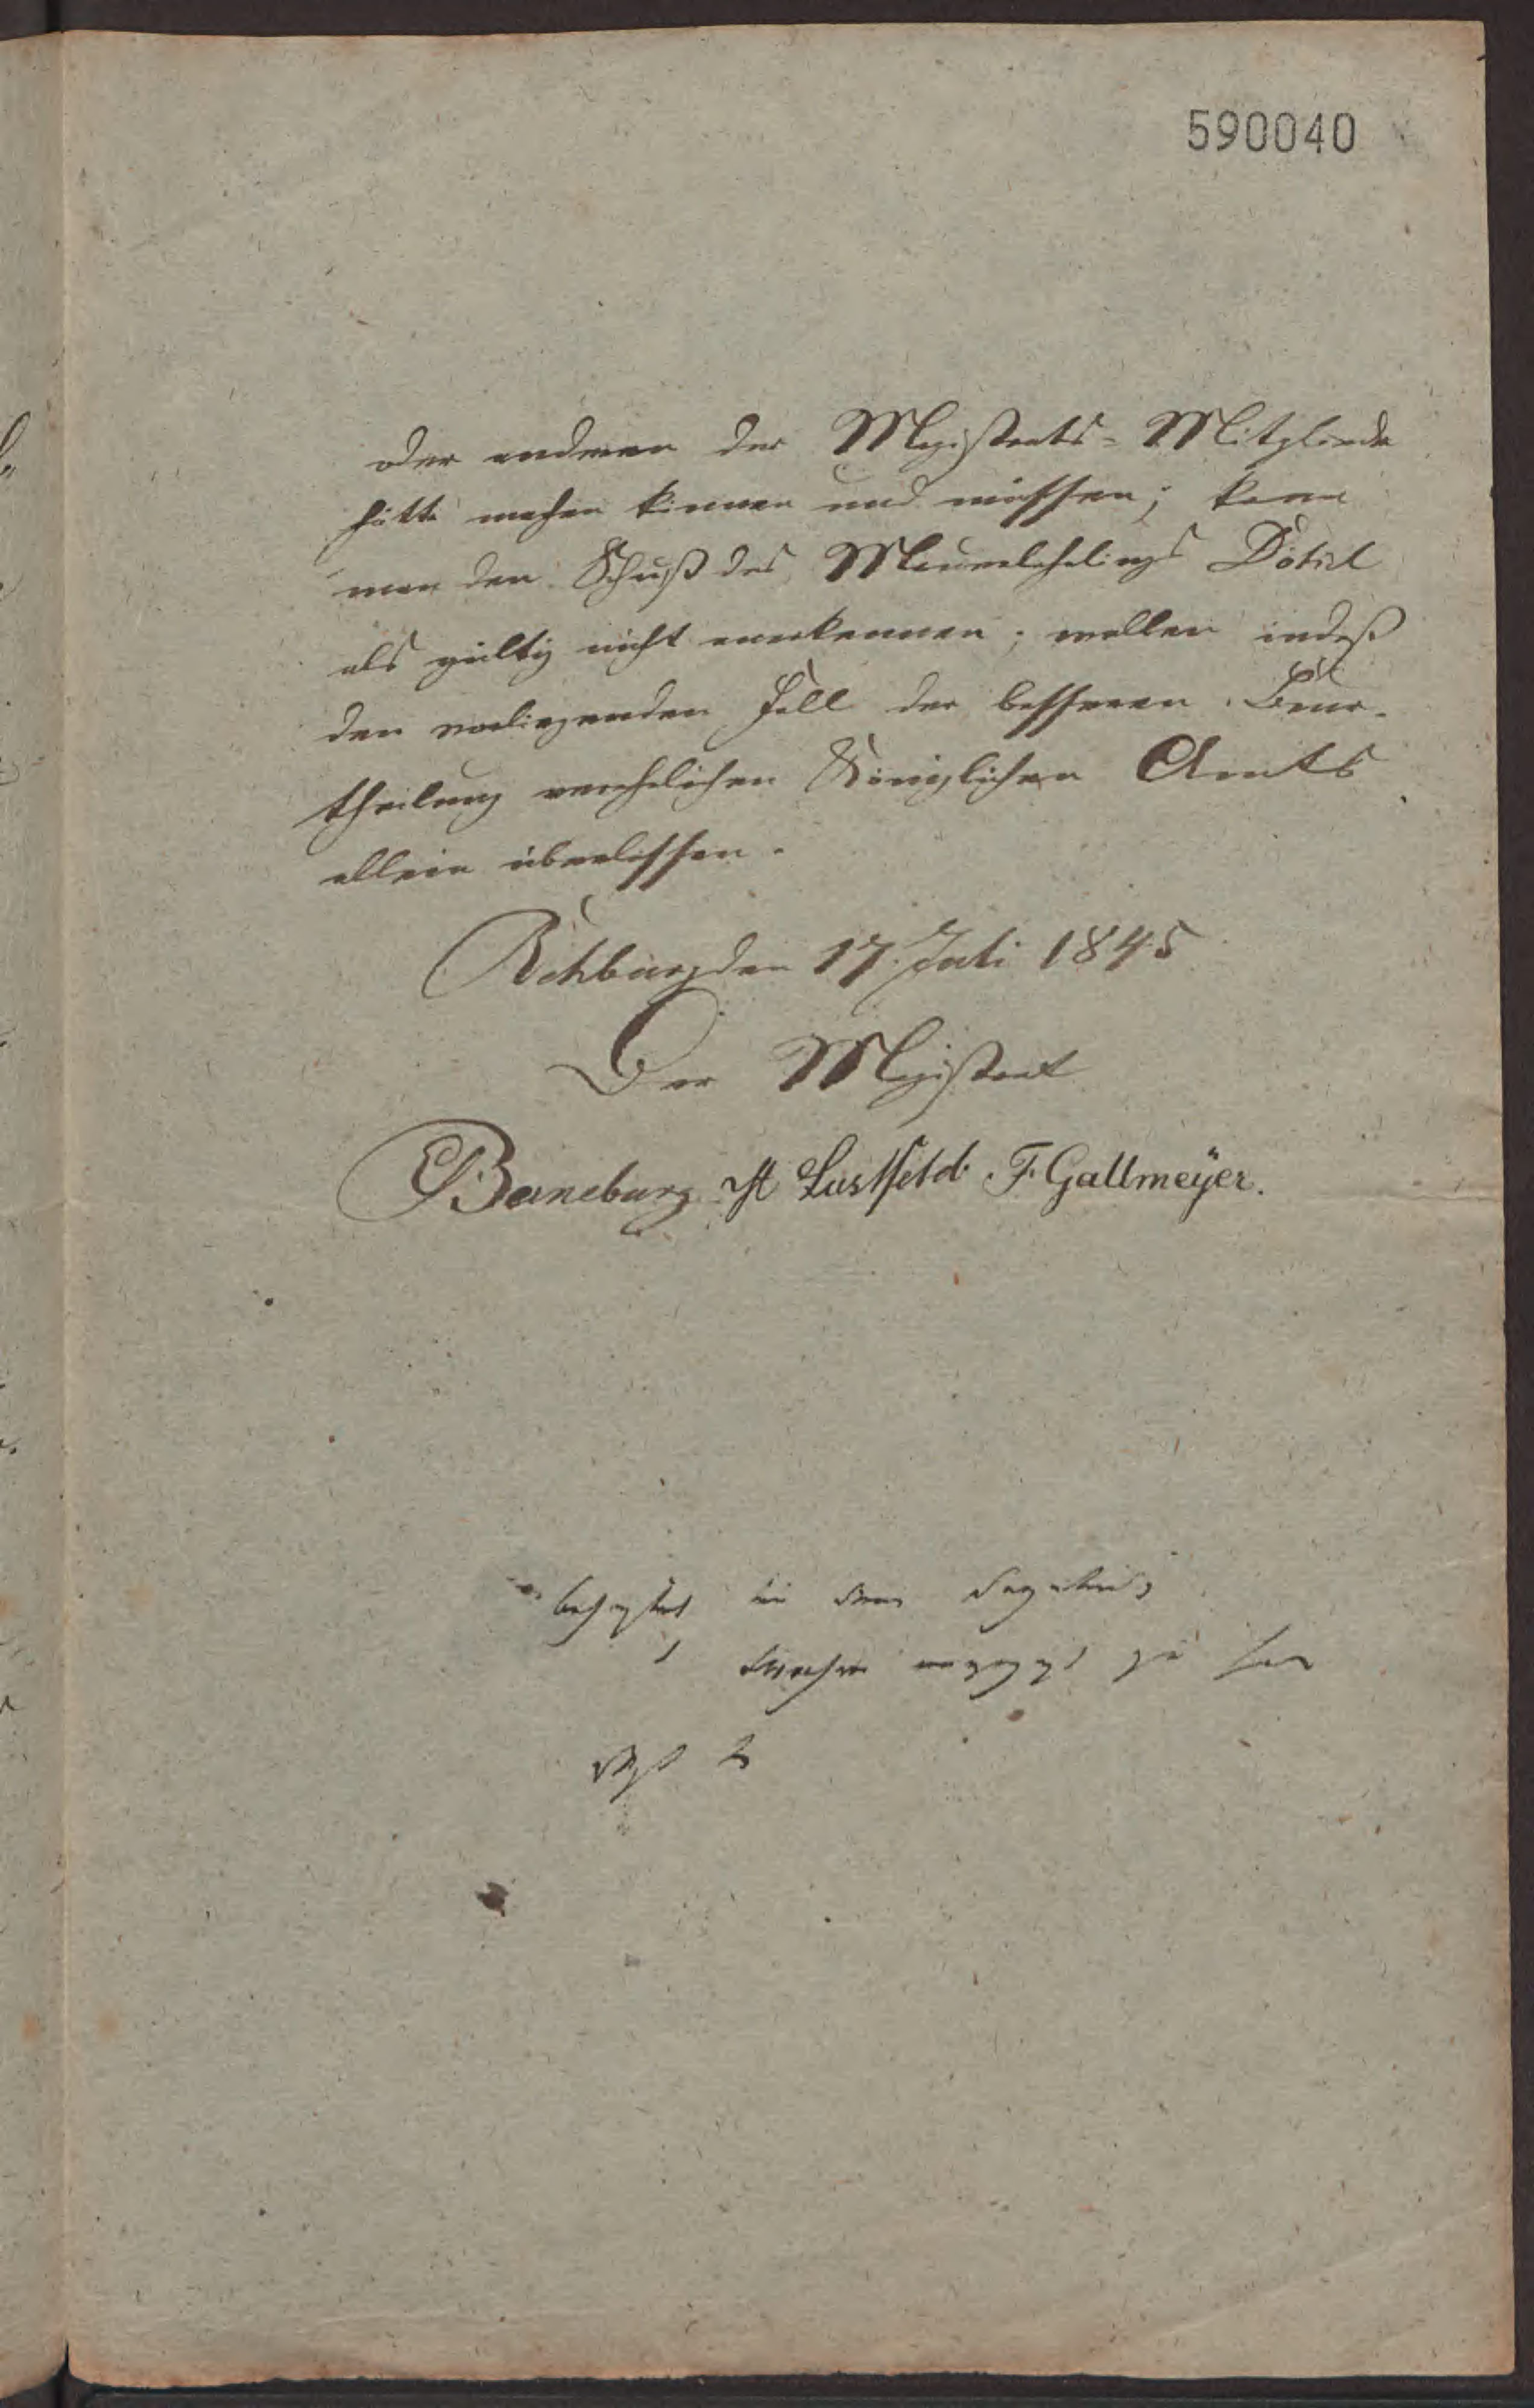 590040
oder anderen der Magistrats-Mitglieder
hätte machen können und müssen; kann
man den Schuß des Maurerlehrlings Dötzel
als gültig nicht anerkennen; wollen indeß
den vorliegenden Fall der besseren Beur-
theilung verehrlichen Königlichen Amts
allein überlassen.
Rehburg den 17. Juli 1845
Der Magistrat
Baneburg H Lustfeld. F. Gallmeÿer.
zu